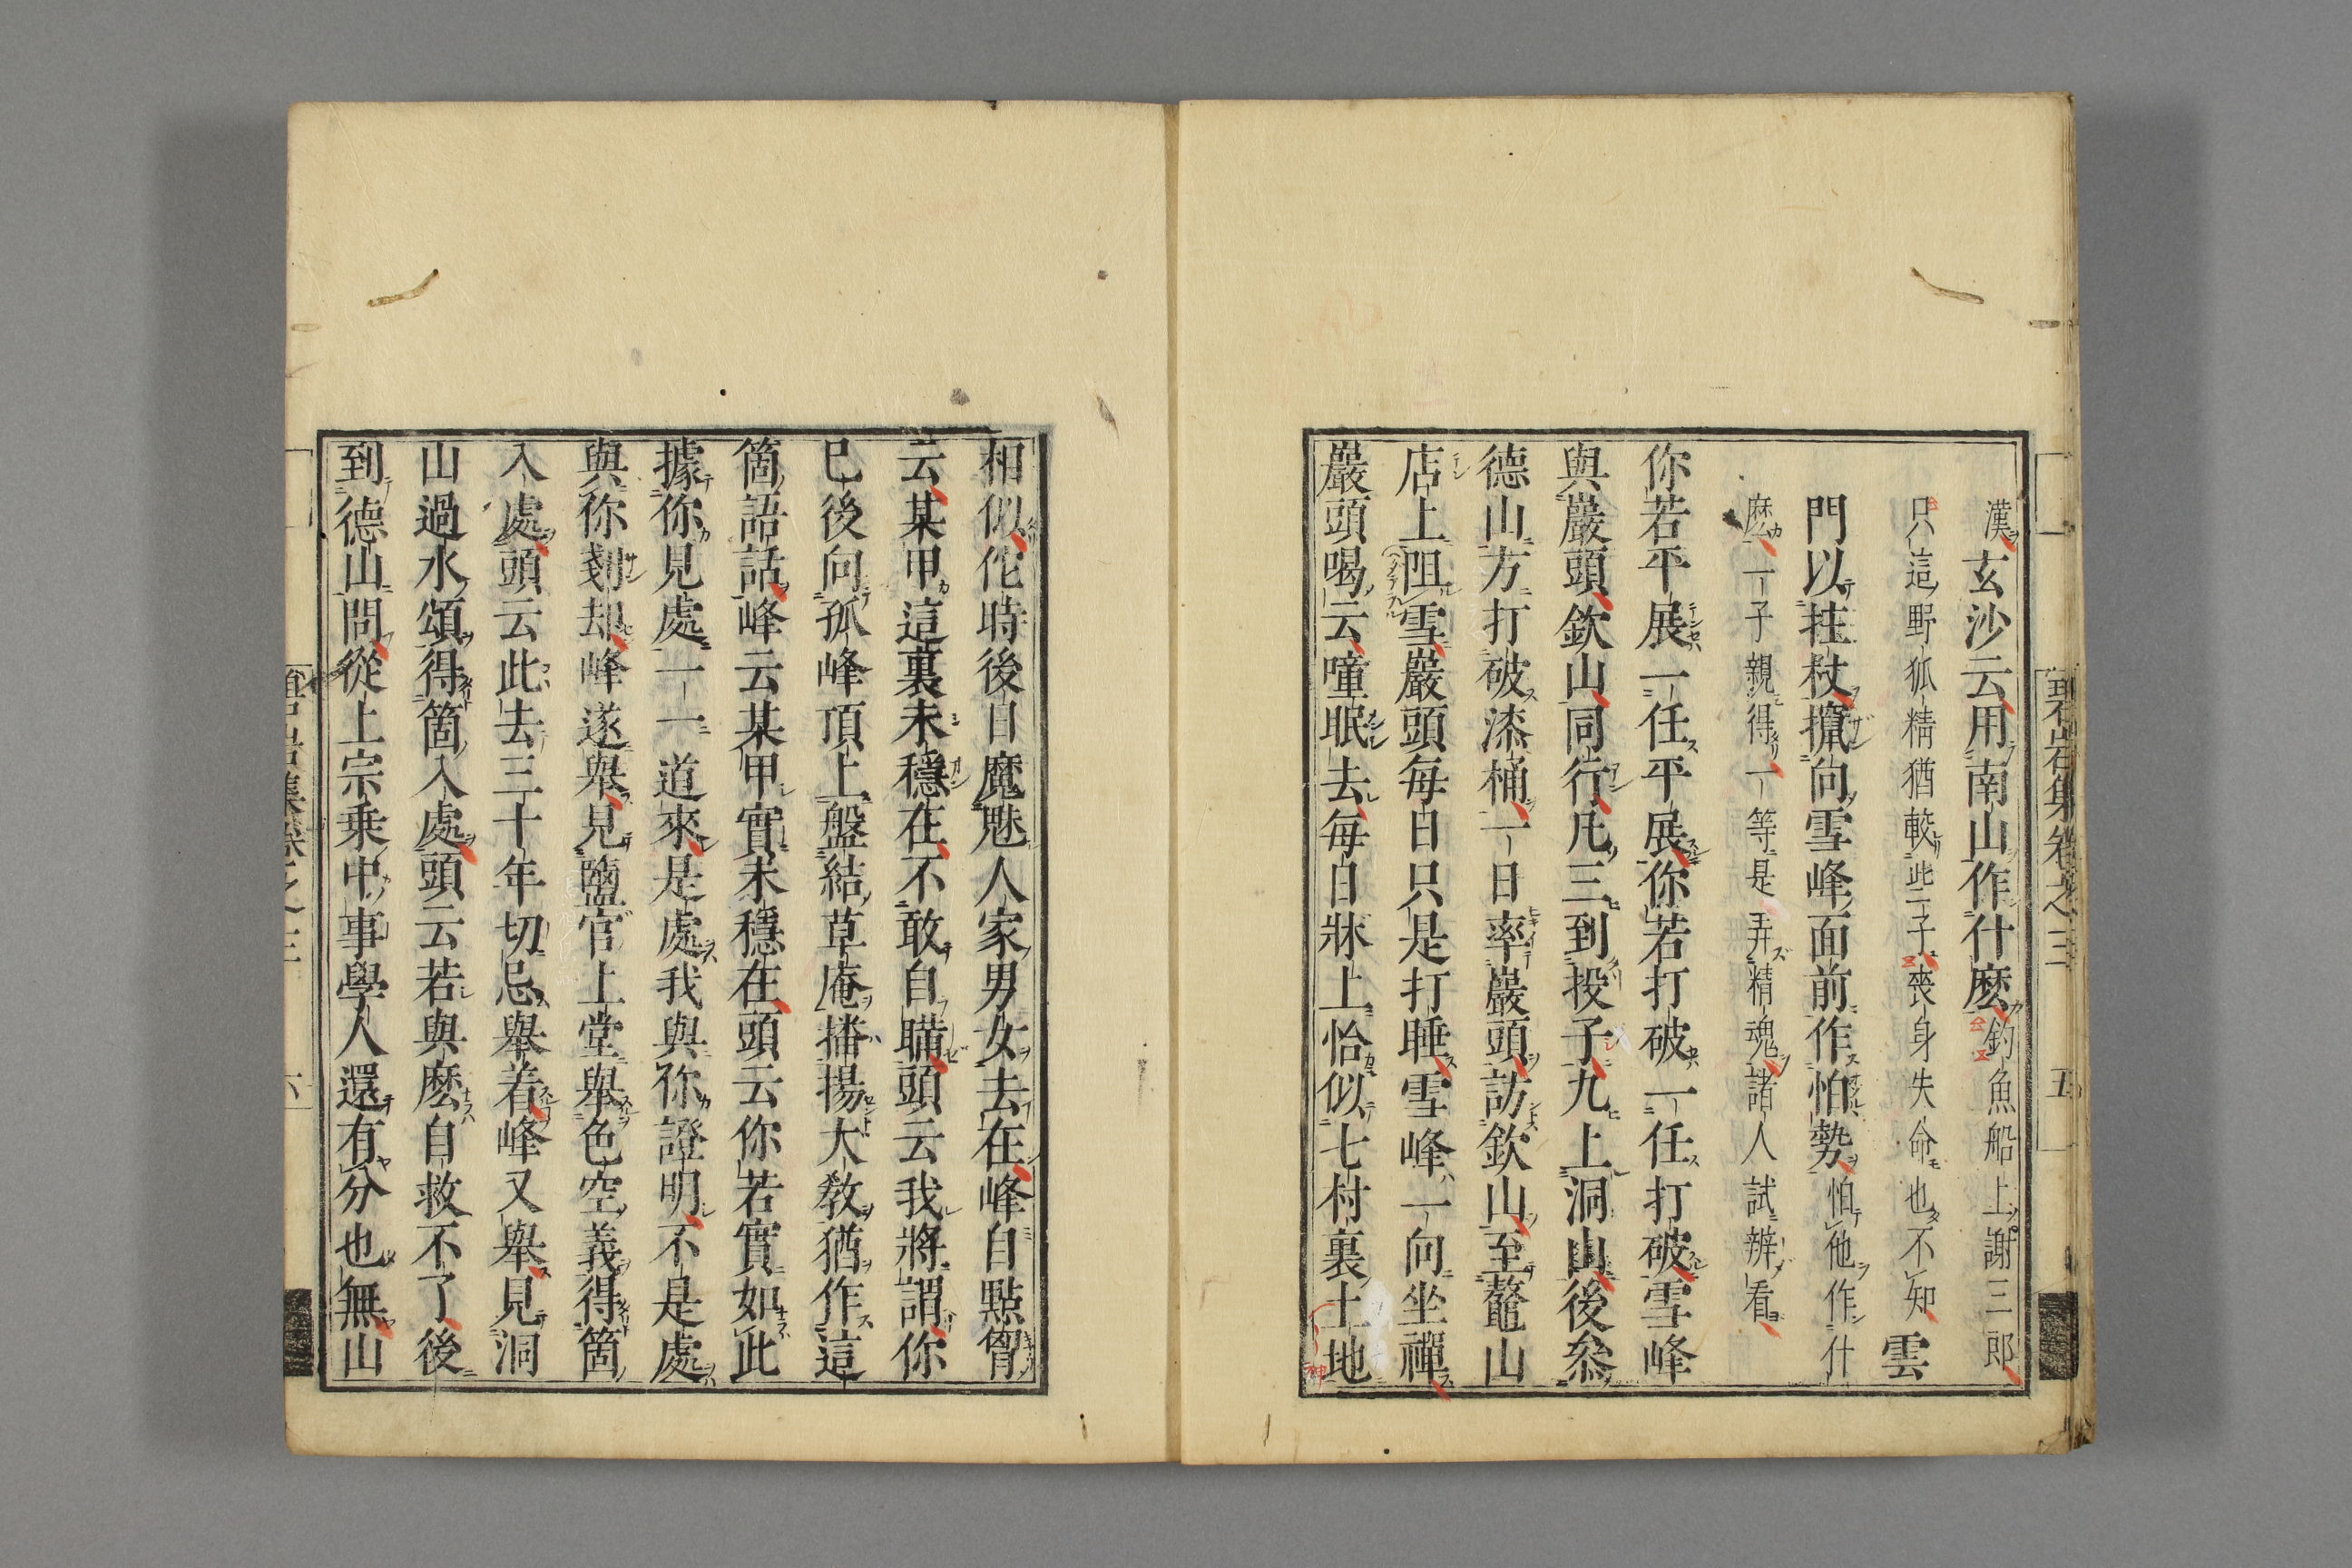 漢玄沙云用南山作什麼釣魚船上謝三郎
只這野狐精猶較些子喪身失命也不知雲
門以拄杖攛向雪峰面前作怕勢怕他作什
麼一子親得一等是弄精魂諸人試辨看
你若平展一任平展你若打破一任打破雪峰
與巖頭欽山同行凡三到投子九上洞山後參
德山方打破漆桶一日率巖頭訪欽山至鼇山
店上阻雪巖頭每日只是打睡雪峰一向坐禪
巖頭喝云噇眠去每日牀上恰似七村裏土地
碧岩集卷之三 五
相似佗時後日魔魅人家男女去在峰自點胷
云某甲這裏未穩在不敢自瞞頭云我將謂你
已後向孤峰頂上盤結草庵播揚大教猶作這
箇語話峰云某甲實未穩在頭云你若實如此
據你見處一一道來是處我與你證明不是處
與你剗却峰遂舉見鹽官上堂舉色空義得箇
入處頭云此去三十年切忌舉着峰又舉見洞
山過水頌得箇入處頭云若與麼自救不了後
到德山問從上宗乘中事學人還有分也無山